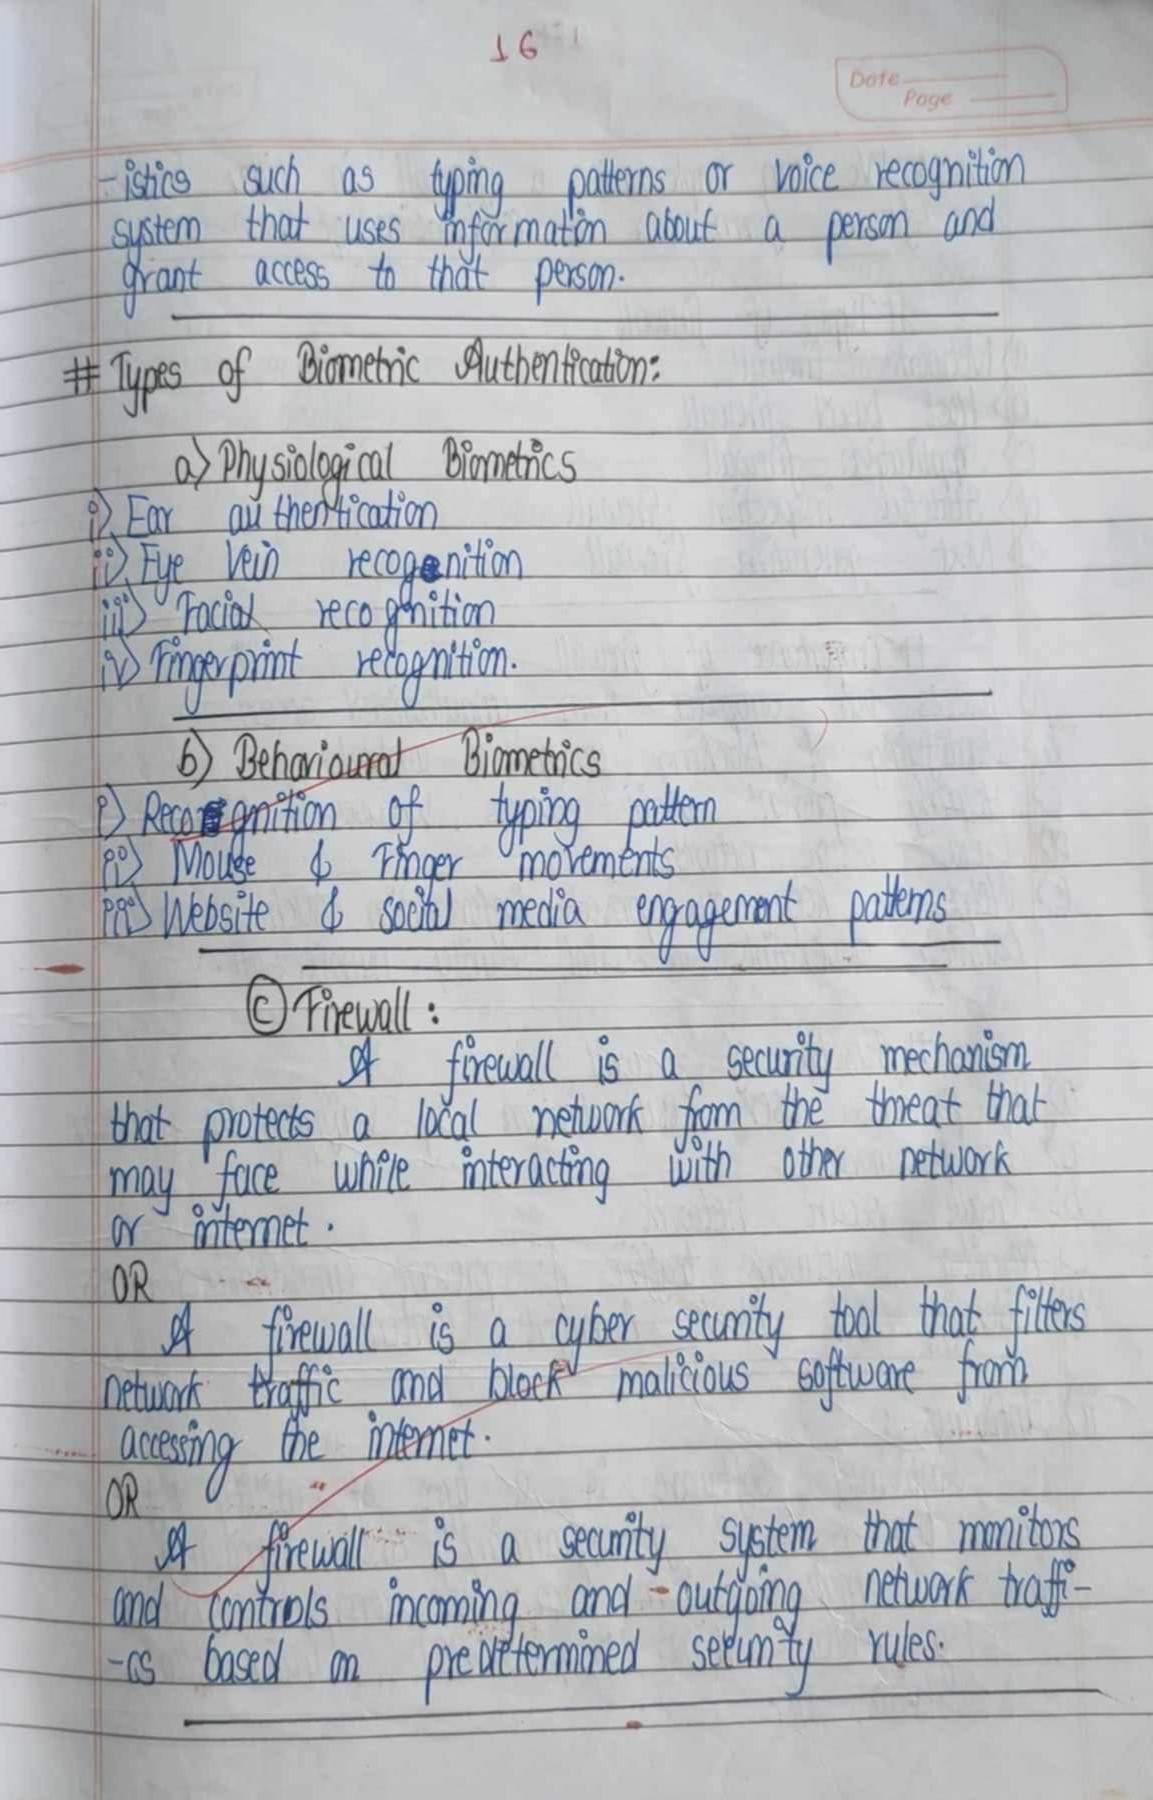 16
Date
Page
-istics such as typing patterns or voice recognition
system that uses information about a person and
grant access to that person.
# Types of Biometric Authentication:
a) Physiological Biometrics
i) Ear authentication
ii) Eye vein recognition
iii) Facial recognition
iv) Fingerprint recognition.
b) Behavioural Biometrics
i) Recognition of typing pattern
ii) Mouse & Finger movements
iii) Website & social media engagement patterns
(c) Firewall:
A firewall is a security mechanism
that protects a local network from the threat that
may face while interacting with other network
or internet.
OR
A firewall is a cyber security tool that filters
network traffic and block malicious software from
accessing the internet.
OR
A firewall is a security system that monitors
and controls incoming and outgoing network traffi-
-cs based on predetermined security rules.